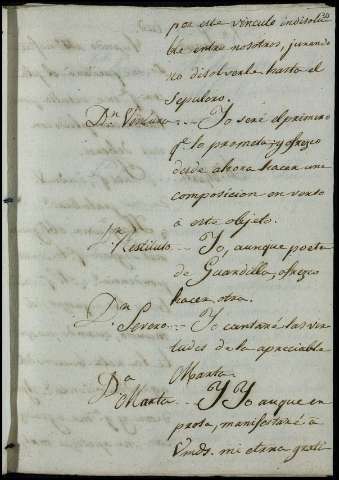 30
por este vinculo indisolu-
ble entre nosotros, jurando
no disolverla hasta el
sepulcro.
Dn. Ventura... Yo seré el primero
qe. lo prometa; y ofrezco
desde ahora hacer una
composicion en verso
a este objeto.
Dn. Restituto... Yo, aunque poeta
de Guardilla, ofrezco
hacer otra.
Dn. Severo... Yo cantaré las vir-
tudes de la apreciable
Marta.
Da. Marta... Y Yo aunque en
prosa, manifestaré á
Vmds. mi eterna grati-